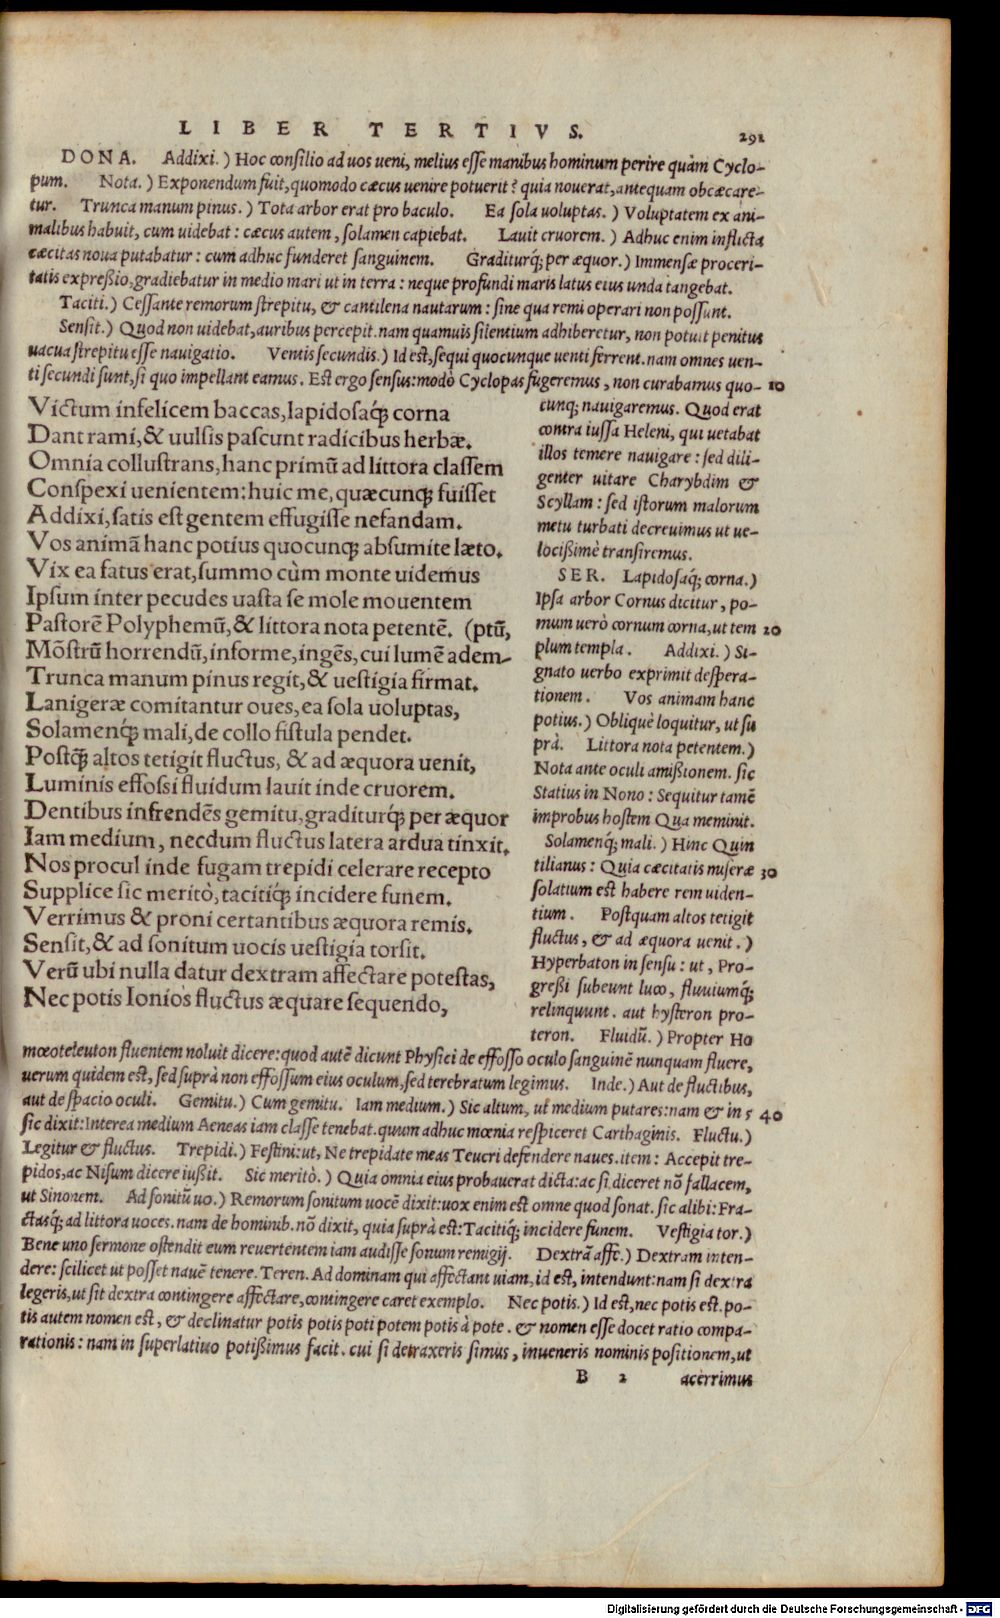 LIBER TERTIVS. 291
DONA. Addixi.) Hoc consilio ad uos ueni, melius esse manibus hominum perire quàm Cyclo-
pum. Nota.) Exponendum fuit, quomodo cæcus uenire potuerit? quia nouerat, antequam obcæcare-
tur. Trunca manum pinus.) Tota arbor erat pro baculo. Ea sola uoluptas.) Voluptatem ex ani-
malibus habuit, cum uidebat: cæcus autem, solamen capiebat. Lauit cruorem.) Adhuc enim inflicta
cæcitas noua putabatur: cum adhuc funderet sanguinem. Graditurq́; per æquor.) Immensæ proceri-
tatis expreßio, gradiebatur in medio mari ut in terra: neque profundi maris latus eius unda tangebat.
Taciti.) Cessante remorum strepitu, & cantilena nautarum: sine qua remi operari non possunt.
Sensit.) Quod non uidebat, auribus percepit. nam quamuis silentium adhiberetur, non potuit penitus
uacua strepitu esse nauigatio. Ventis secundis.) Id est, sequi quocunque uenti ferrent. nam omnes uen-
ti secundi sunt, si quo impellant eamus. Est ergo sensus: modò Cyclopas fugeremus, non curabamus quo- 10
Victum infelicem baccas, lapidosaq́; corna
Dant rami, & uulsis pascunt radicibus herbæ.
Omnia collustrans, hanc primũ ad littora classem
Conspexi uenientem: huic me, quæcunq; fuisset
Addixi, satis est gentem effugisse nefandam.
Vos animã hanc potius quocunq; absumite læto.
Vix ea fatus erat, summo cùm monte uidemus
Ipsum inter pecudes uasta se mole mouentem
Pastorẽ Polyphemũ, & littora nota petentẽ. (ptũ,
Mõstrũ horrendũ, informe, ingẽs, cui lumẽ adem-
Trunca manum pinus regit, & uestigia firmat.
Lanigeræ comitantur oues, ea sola uoluptas,
Solamenq́; mali, de collo fistula pendet.
Postq̃; altos tetigit fluctus, & ad æquora uenit,
Luminis effossi fluidum lauit inde cruorem.
Dentibus infrendẽs gemitu, graditurq́; per æquor
Iam medium, necdum fluctus latera ardua tinxit.
Nos procul inde fugam trepidi celerare recepto
Supplice sic meritò, tacitiq́; incidere funem.
Verrimus & proni certantibus æquora remis.
Sensit, & ad sonitum uocis uestigia torsit.
Verũ ubi nulla datur dextram affectare potestas,
Nec potis Ionios fluctus æquare sequendo,
cunq; nauigaremus. Quod erat
contra iussa Heleni, qui uetabat
illos temere nauigare: sed dili-
genter uitare Charybdim &
Scyllam: sed istorum malorum
metu turbati decreuimus ut ue-
locißimè transiremus.
SER. Lapidosaq́; corna.)
Ipsa arbor Cornus dicitur, po-
mum uerò cornum corna, ut tem 20
plum templa. Addixi.) Si-
gnato uerbo exprimit despera-
tionem. Vos animam hanc
potius.) Obliquè loquitur, ut su
prà. Littora nota petentem.)
Nota ante oculi amißionem. sic
Statius in Nono: Sequitur tamẽ
improbus hostem Qua meminit.
Solamenq́; mali.) Hinc Quin
tilianus: Quia cæcitatis miseræ 30
solatium est habere rem uiden-
tium. Postquam altos tetigit
fluctus, & ad æquora uenit.)
Hyperbaton in sensu: ut, Pro-
greßi subeunt luco, fluuiumq́;
relinquunt. aut hysteron pro-
teron. Fluidũ.) Propter Ho
mœoteleuton fluentem noluit dicere: quod autẽ dicunt Physici de effosso oculo sanguinẽ nunquam fluere,
uerum quidem est, sed suprà non effossum eius oculum, sed terebratum legimus. Inde.) Aut de fluctibus,
aut de spacio oculi. Gemitu.) Cum gemitu. Iam medium.) Sic altum, ut medium putares: nam & in 5 40
sic dixit: Interea medium Aeneas iam classe tenebat. quum adhuc mœnia respiceret Carthaginis. Fluctu.)
Legitur & fluctus. Trepidi.) Festini: ut, Ne trepidate meas Teucri defendere naues. item: Accepit tre-
pidos, ac Nisum dicere iußit. Sic meritò.) Quia omnia eius probauerat dicta: ac si diceret nõ fallacem,
ut Sinonem. Ad sonitũ uo.) Remorum sonitum uocẽ dixit: uox enim est omne quod sonat. sic alibi: Fra-
ctasq́; ad littora uoces. nam de hominib. nõ dixit, quia suprà est: Tacitiq́; incidere funem. Vestigia tor.)
Bene uno sermone ostendit eum reuertentem iam audisse sonum remigij. Dextrã affe.) Dextram inten-
dere: scilicet ut posset nauẽ tenere. Teren. Ad dominam qui affectant uiam, id est, intendunt: nam si dextra
legeris, ut sit dextra contingere affectare, contingere caret exemplo. Nec potis.) Id est, nec potis est. po-
tis autem nomen est, & declinatur potis potis poti potem potis à pote. & nomen esse docet ratio compa-
rationis: nam in superlatiuo potißimus facit. cui si detraxeris simus, inueneris nominis positionem, ut
B 2 acerrimus
Digitalisierung gefördert durch die Deutsche Forschungsgemeinschaft - DFG